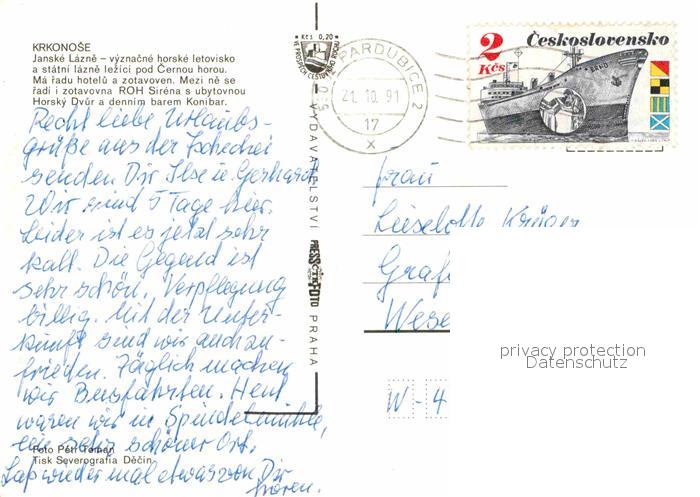 KRKONOŠE
Janské Lázně – význačné horské letovisko
a státní lázně ležící pod Černou horou.
Má řadu hotelů a zotavoven. Mezi ně se
řadí i zotavovna ROH Siréna s ubytovnou
Horský Dvůr a denním barem Koníbar.
Recht liebe Urlaubs-
grüße aus der Tschechei
senden Dir Ilse u. Gerhard
Wir sind 5 Tage hier.
Leider ist es jetzt sehr
kalt. Die Gegend ist
sehr schön, Verpflegung
billig. Mit der Unter-
kunft sind wir auch zu-
frieden. Täglich machen
wir Busfahrten. Heut
waren wir in Spindelmühle,
ein sehr schöner Ort.
Foto Petr Toman
Tisk Severografia Děčín
Laß wieder mal etwas von Dir
hören.
Kčs 0,20
VYDAVATELSTVÍ
PRESSFOTO
PRAHA
PARDUBICE 2
530 02
21.10.91
17
x
2
Kčs
Československo
BRNO
Frau
Lieselotte Krüger
Graf
Wese
W - 4
privacy protection
Datenschutz